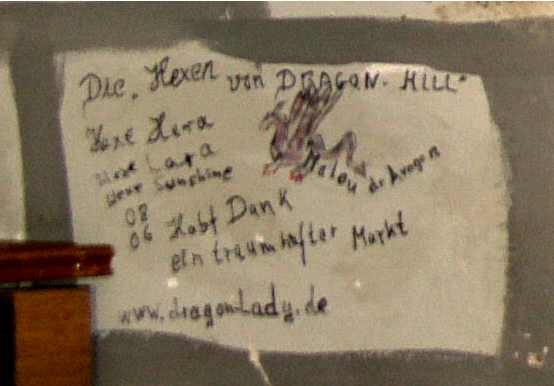 Die Hexen von DRAGON-HILL
Hexe Hera
Hexe Lara
Hexe Sunshine
Malou dr Dragon
08
06 Habt Dank
ein traumhafter Markt
www.dragonLady.de